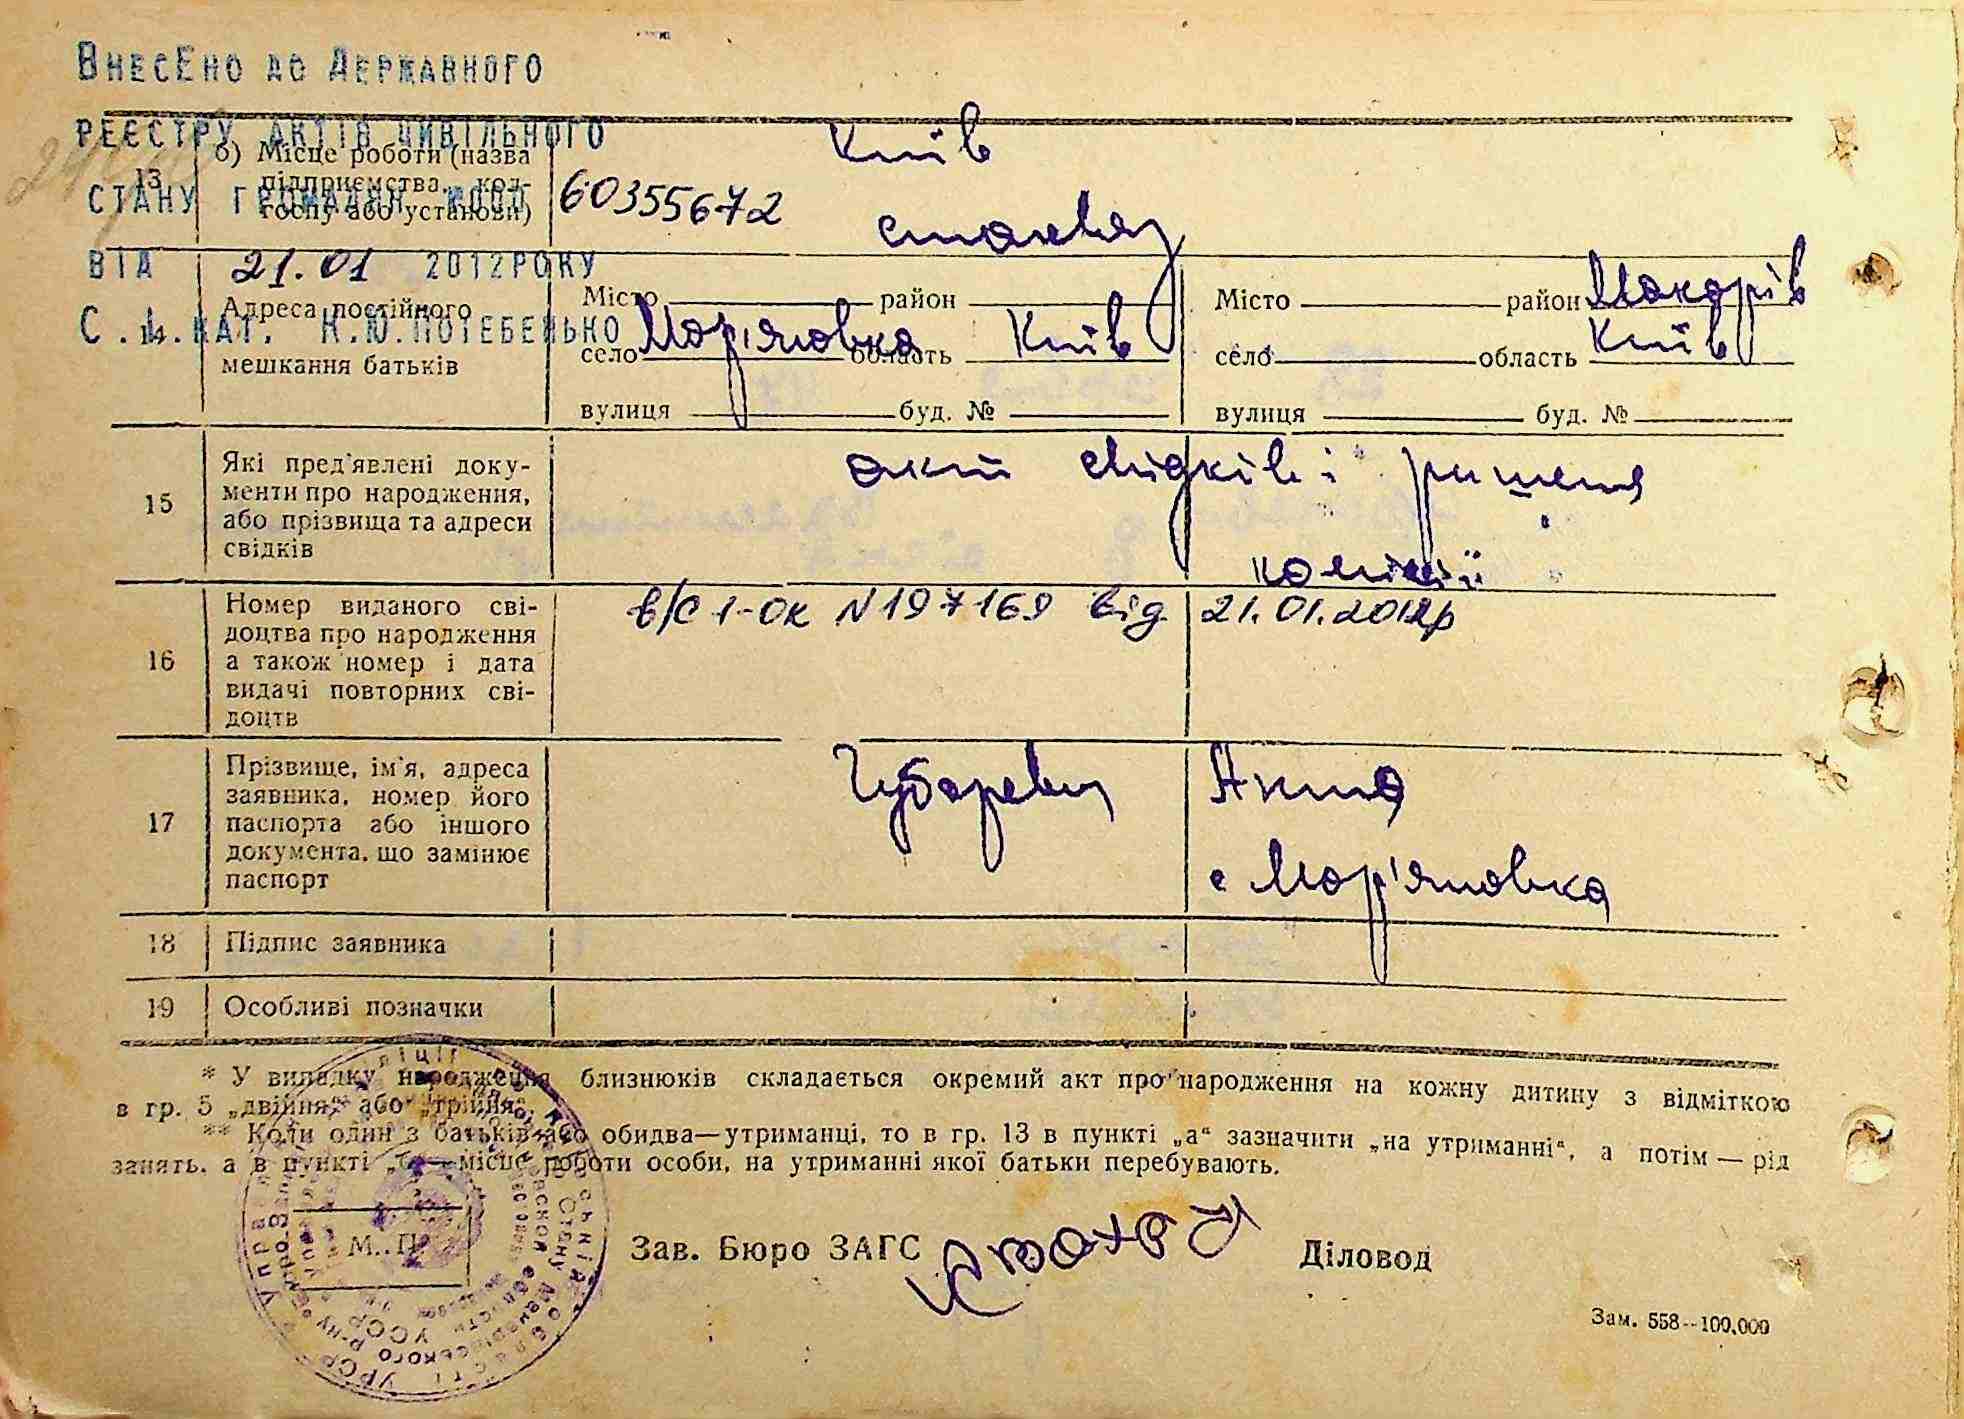 ВНЕСЕНО ДО ДЕРЖАВНОГО
РЕЄСТРУ АКТІВ ЦИВІЛЬНОГО
СТАНУ ГРОМАДЯН №000 60355672
ВІД 21.01 2012РОКУ
С.І.КАТ. Н.Ю.ПОТЕБЕНЬКО
13 б) Місце роботи (назва підприємства, кол-
госпу або установи)
Київ
14 Адреса постійного
мешкання батьків
Місто район
село Мар'яновка область Київ
вулиця буд. №
Місто район Макарів
село область Київ
вулиця буд. №
15 Які пред'явлені доку-
менти про народження,
або прізвища та адреси
свідків
акт свідків і ришення
комісії
16 Номер виданого сві-
доцтва про народження
а також номер і дата
видачі повторних сві-
доцтв
в/с 1-ОК N 197169 від 21.01.2012р
17 Прізвище, ім'я, адреса
заявника, номер його
паспорта або іншого
документа, що замінює
паспорт
с Мар'яновка
18 Підпис заявника
19 Особливі позначки
* У випадку народження близнюків складається окремий акт про народження на кожну дитину з відміткою
в гр. 5 „двійня“ або „трійня“.
** Коли один з батьків або обидва—утриманці, то в гр. 13 в пункті „а“ зазначити „на утриманні“, а потім — рід
занять, а в пункті „б“ — місце роботи особи, на утриманні якої батьки перебувають.
М. П.
Зав. Бюро ЗАГС
Діловод
Зам. 558--100,000